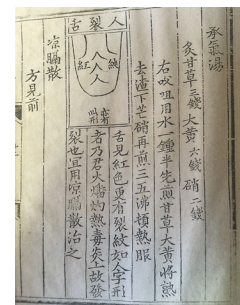 承氣湯
炙甘草三錢 大黃六錢 硝二錢
右㕮咀用水一鍾半先煎甘草大黃將熟
去渣下芒硝再煎三五沸頓熱服
人裂舌
紅 紋
人
人
人
舌見紅色更有裂紋如人字形
者乃君火燔灼熱毒炎上故發
裂也宜用涼膈散治之
涼膈散
方見前